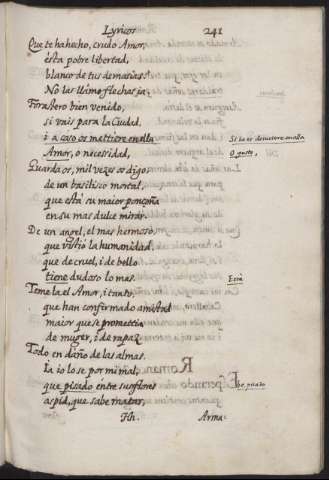 Lyricos 241
Que te ha hecho, crudo Amor,
esta pobre libertad,
blanco de tus demasias?
No las llamo flechas ia.
Forastero bien venido,
si vais para la Ciudad,
i a caso os mettiere en alla
Si la os demetiere en alla
Amor, o necesidad,
O gusto,
Guardaos, mil vezes os digo,
de un basilisco mortal,
que està su maior ponçoña
en su mas dulce mirar.
De un angel, el mas hermoso,
que vistio la humanidad,
que de cruel, i de bello
tiene dudoso lo mas.
Està
Temela el Amor, i tanto,
que han confirmado amistad
maior que se promettia
de muger, i de rapaz.
Todo en daño de las almas.
Ia io lo se por mi mal,
que pisado entre sus flores
he pisado
aspid, que sabe matar,
Hh. Arma-